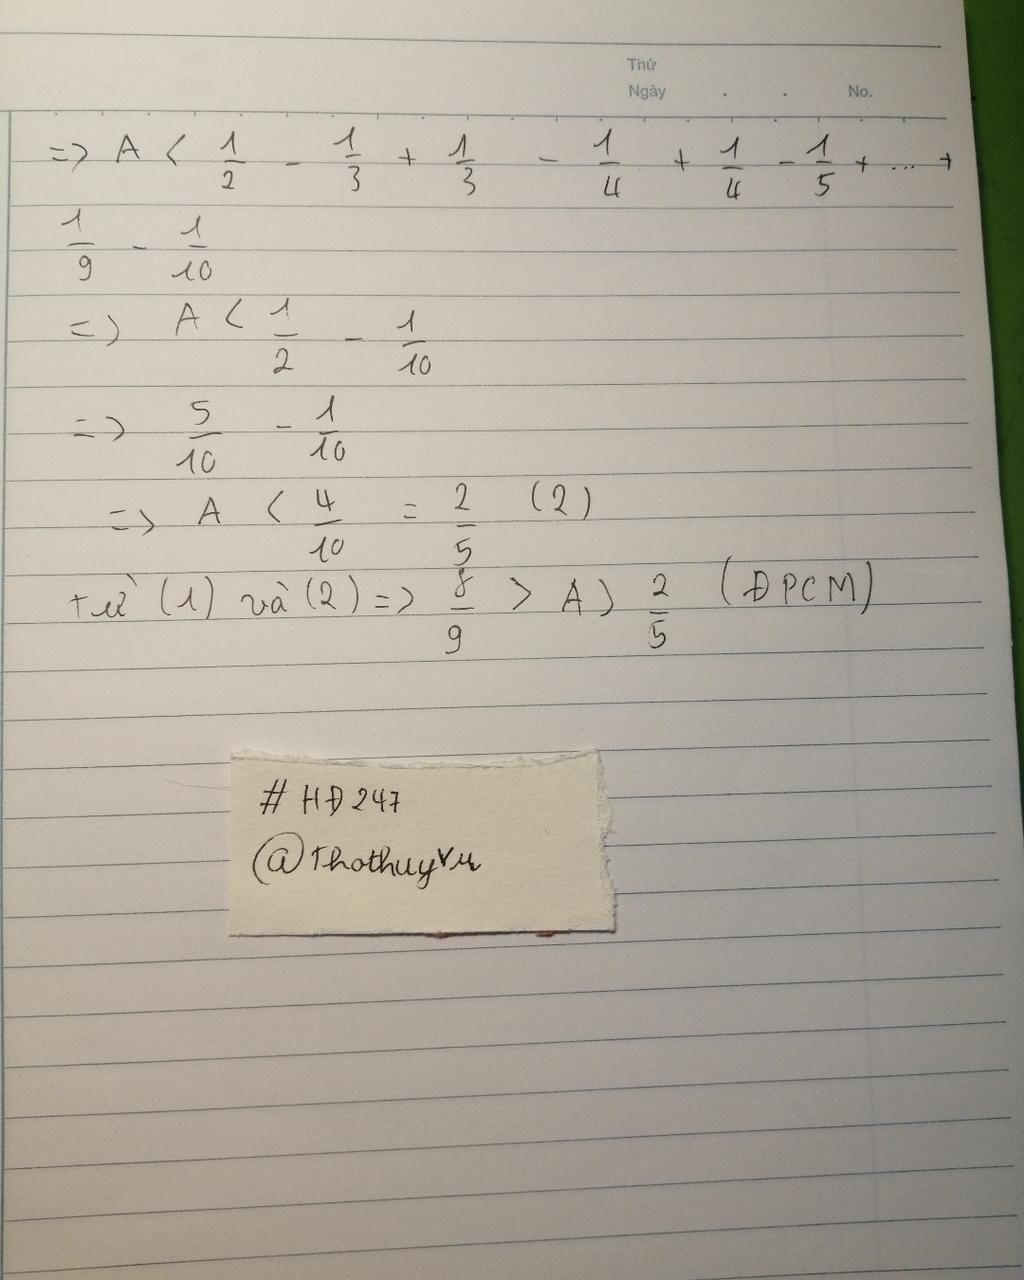 Thứ
Ngày . . No.
=> A < 1/2 - 1/3 + 1/3 - 1/4 + 1/4 - 1/5 + ... +
1/9 - 1/10
=> A < 1/2 - 1/10
=> 5/10 - 1/10
=> A < 4/10 = 2/5 (2)
từ (1) và (2) => 8/9 > A > 2/5 (ĐPCM)
# HĐ247
@Thothuyvu